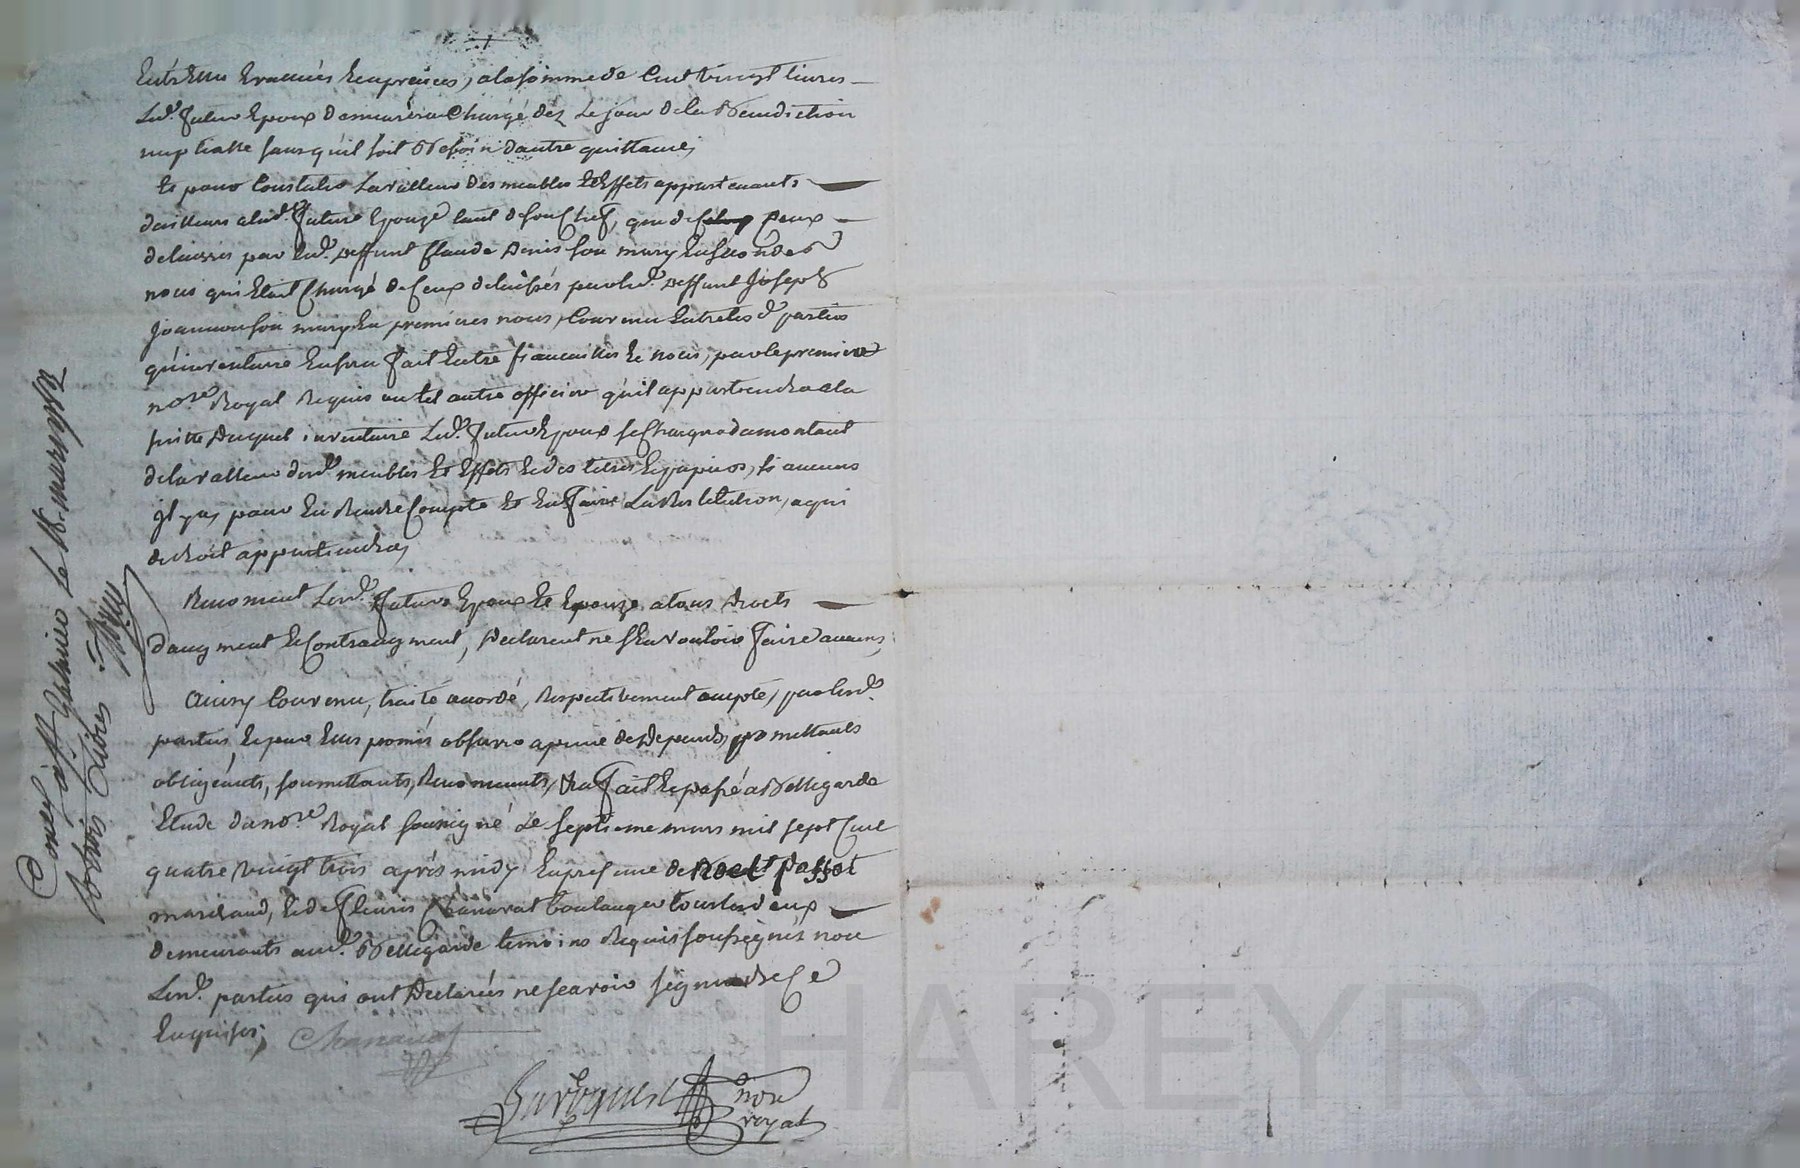 Entr'eux evalués et apréciés, a la somme de Cent vingt livres
Led. futur Epoux demeurera Chargé dez le jour de la Benediction
nuptialle sans qu'il soit Besoin d'autre quittance,
Et pour Constater la valleur des meubles Et Effets appartenants
dailleurs a lad. future Epouze tant de son Chef, que de ceux
delaissés par led. deffunt Claude Denis son mary En secondes
noces qui Etoit Chargé de Ceux delaissés par led. deffunt Joseph
Joannon son mary En premieres noces, Convenu Entre lesd. parties
qu'inventaire En sera fait Entre fiancailles Et noces, par le premier
nore. Royal Requis ou tel autre officier qu'il appartiendra a la
suitte duquel inventaire led. futur Epoux se Chargera du montant
de la valleur desd. meubles Et Effets Et des titres Et papiers, si aucuns
il y a, pour En Rendre Compte Et En faire La Restitution, a qui
de droit appartiendra,
Renoncent lesd. futurs Epoux Et Epouze a tous Droits
d'augment Et Contraugment, Declarent ne s'En vouloir faire aucuns,
Ainsy Convenu, traité accordé, Respectivement accepté, par lesd.
parties, Et par Elles promis observer a peine de Depends, promettants
obligéants, soumettants, Renonceants, &ca fait Et passé a Bellegarde
Etude du nore. Royal soussigné Le septieme mars mil sept Cent
quatre vingt trois après midy En presence de Noel Passot
marchand, Et de fleuris Chanavat boulanger tous les deux
demeurants aud. Bellegarde temoins Requis soussignés non
Lesd. parties qui ont Declarées ne scavoir signer de Ce
Enquises;
Chanavat
nore
royal
Conl. a St. Galmier le 18. mars 1783
Reçu trois Livres